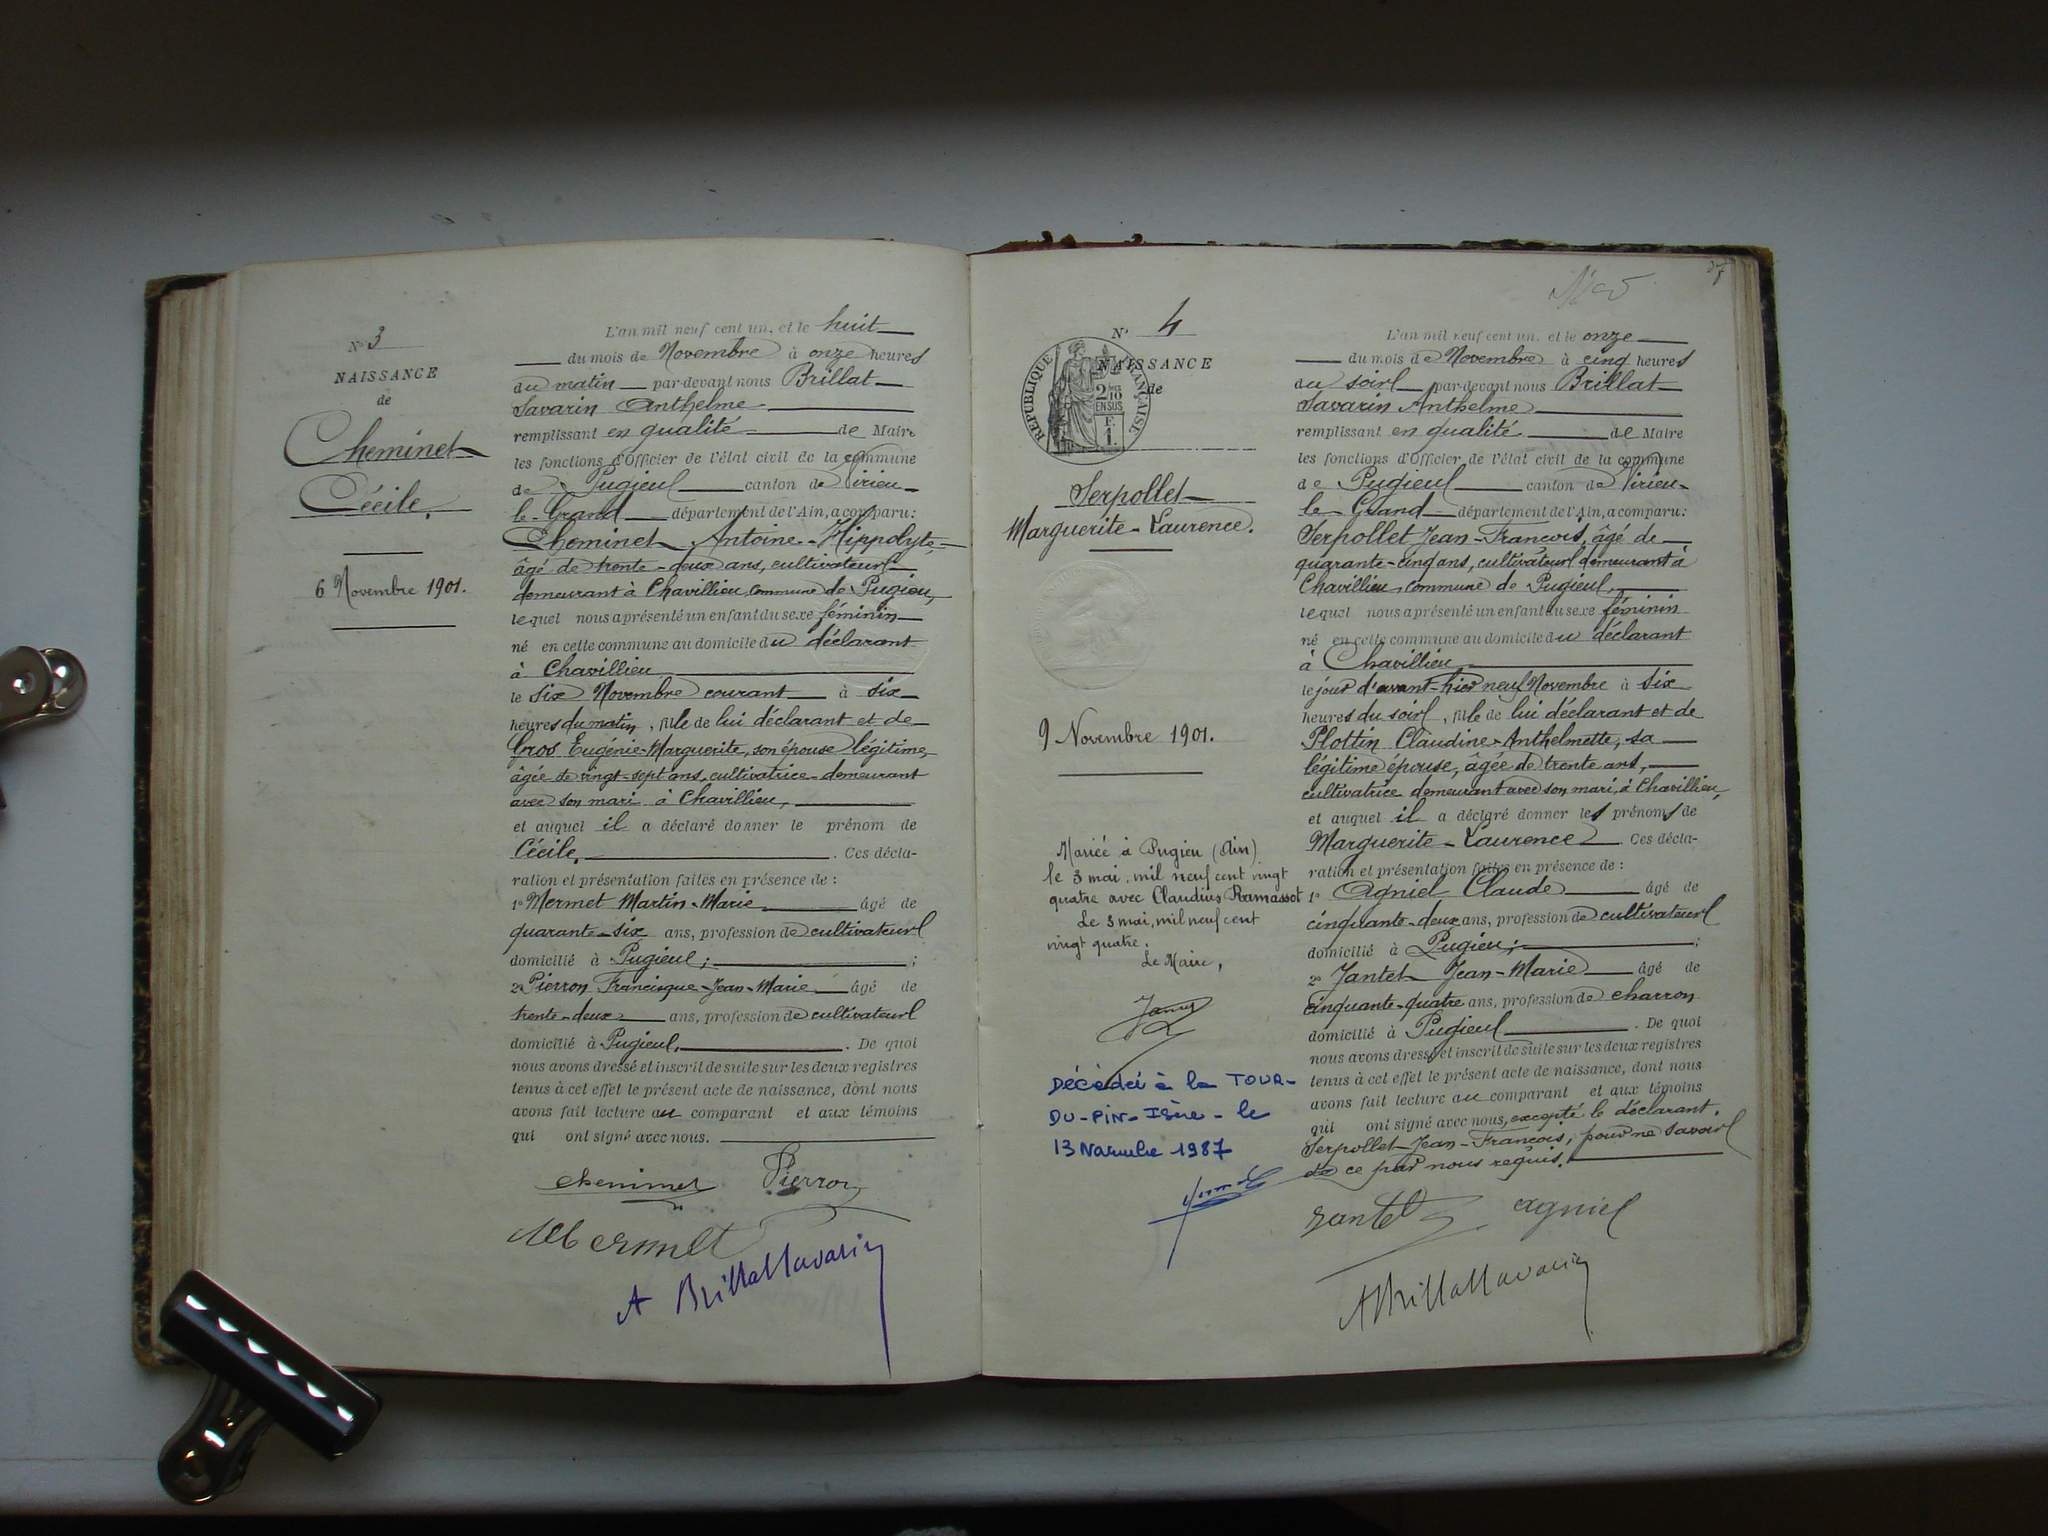 N° 3
NAISSANCE
de
Cheminet
Cécile.
6 Novembre 1901.
L'an mil neuf cent un, et le huit
du mois de Novembre à onze heures
du matin par-devant nous Brillat
Savarin Anthelme
remplissant en qualité de Maire
les fonctions d'Officier de l'état civil de la commune
de Pugieu canton de Virieu-
le-Grand département de l'Ain, a comparu:
Cheminet Antoine-Hippolyte,
âgé de trente-deux ans, cultivateur
demeurant à Chavillieu, commune de Pugieu,
lequel nous a présenté un enfant du sexe féminin
né en cette commune au domicile du déclarant
à Chavillieu
le six Novembre courant à six
heures du matin, fille de lui déclarant et de
Gros Eugénie-Marguerite, son épouse légitime,
âgée de vingt-sept ans, cultivatrice demeurant
avec son mari à Chavillieu,
et auquel il a déclaré donner le prénom de
Cécile. Ces décla-
ration et présentation faites en présence de :
1° Mermet Martin-Marie âgé de
quarante-six ans, profession de cultivateur
domicilié à Pugieu; ;
2° Pierron Francisque-Jean-Marie âgé de
trente-deux ans, profession de cultivateur
domicilié à Pugieu. . De quoi
nous avons dressé et inscrit de suite sur les deux registres
tenus à cet effet le présent acte de naissance, dont nous
avons fait lecture au comparant et aux témoins
qui ont signé avec nous.
cheminet Pierron
Mermet
A Brillat Savarin
N° 4
NAISSANCE
de
RÉPUBLIQUE FRANÇAISE
2/10
EN SUS
F.
1.
Serpollet
Marguerite-Laurence.
9 Novembre 1901.
Mariée à Pugieu (Ain)
le 3 mai, mil neuf cent vingt
quatre avec Claudius Ramassot
Le 3 mai, mil neuf cent
vingt quatre.
Le Maire,
Décédée à la TOUR-
DU-PIN-Isère-le
13 Novembre 1987
L'an mil neuf cent un, et le onze
du mois de Novembre à cinq heures
du soir par-devant nous Brillat
Savarin Anthelme
remplissant en qualité de Maire
les fonctions d'Officier de l'état civil de la commune
de Pugieu canton de Virieu-
le Grand département de l'Ain, a comparu:
Serpollet Jean-François, âgé de
quarante-cinq ans, cultivateur demeurant à
Chavillieu, commune de Pugieu,
lequel nous a présenté un enfant du sexe féminin
né en cette commune au domicile du déclarant
à Chavillieu
le jour d'avant-hier neuf Novembre à six
heures du soir, fille de lui déclarant et de
Plottin Claudine-Anthelmette, sa
légitime épouse, âgée de trente ans,
cultivatrice demeurant avec son mari, à Chavillieu,
et auquel il a déclaré donner les prénoms de
Marguerite-Laurence. Ces décla-
ration et présentation faites en présence de :
1° Agniel Claude âgé de
cinquante-deux ans, profession de cultivateur
domicilié à Pugieu; ;
2° Jantet Jean-Marie âgé de
cinquante-quatre ans, profession de charron
domicilié à Pugieu . De quoi
nous avons dressé et inscrit de suite sur les deux registres
tenus à cet effet le présent acte de naissance, dont nous
avons fait lecture au comparant et aux témoins
qui ont signé avec nous, excepté le déclarant.
Serpollet Jean-François, pour ne savoir
de ce par nous requis.
Jantet agniel
A Brillat Savarin